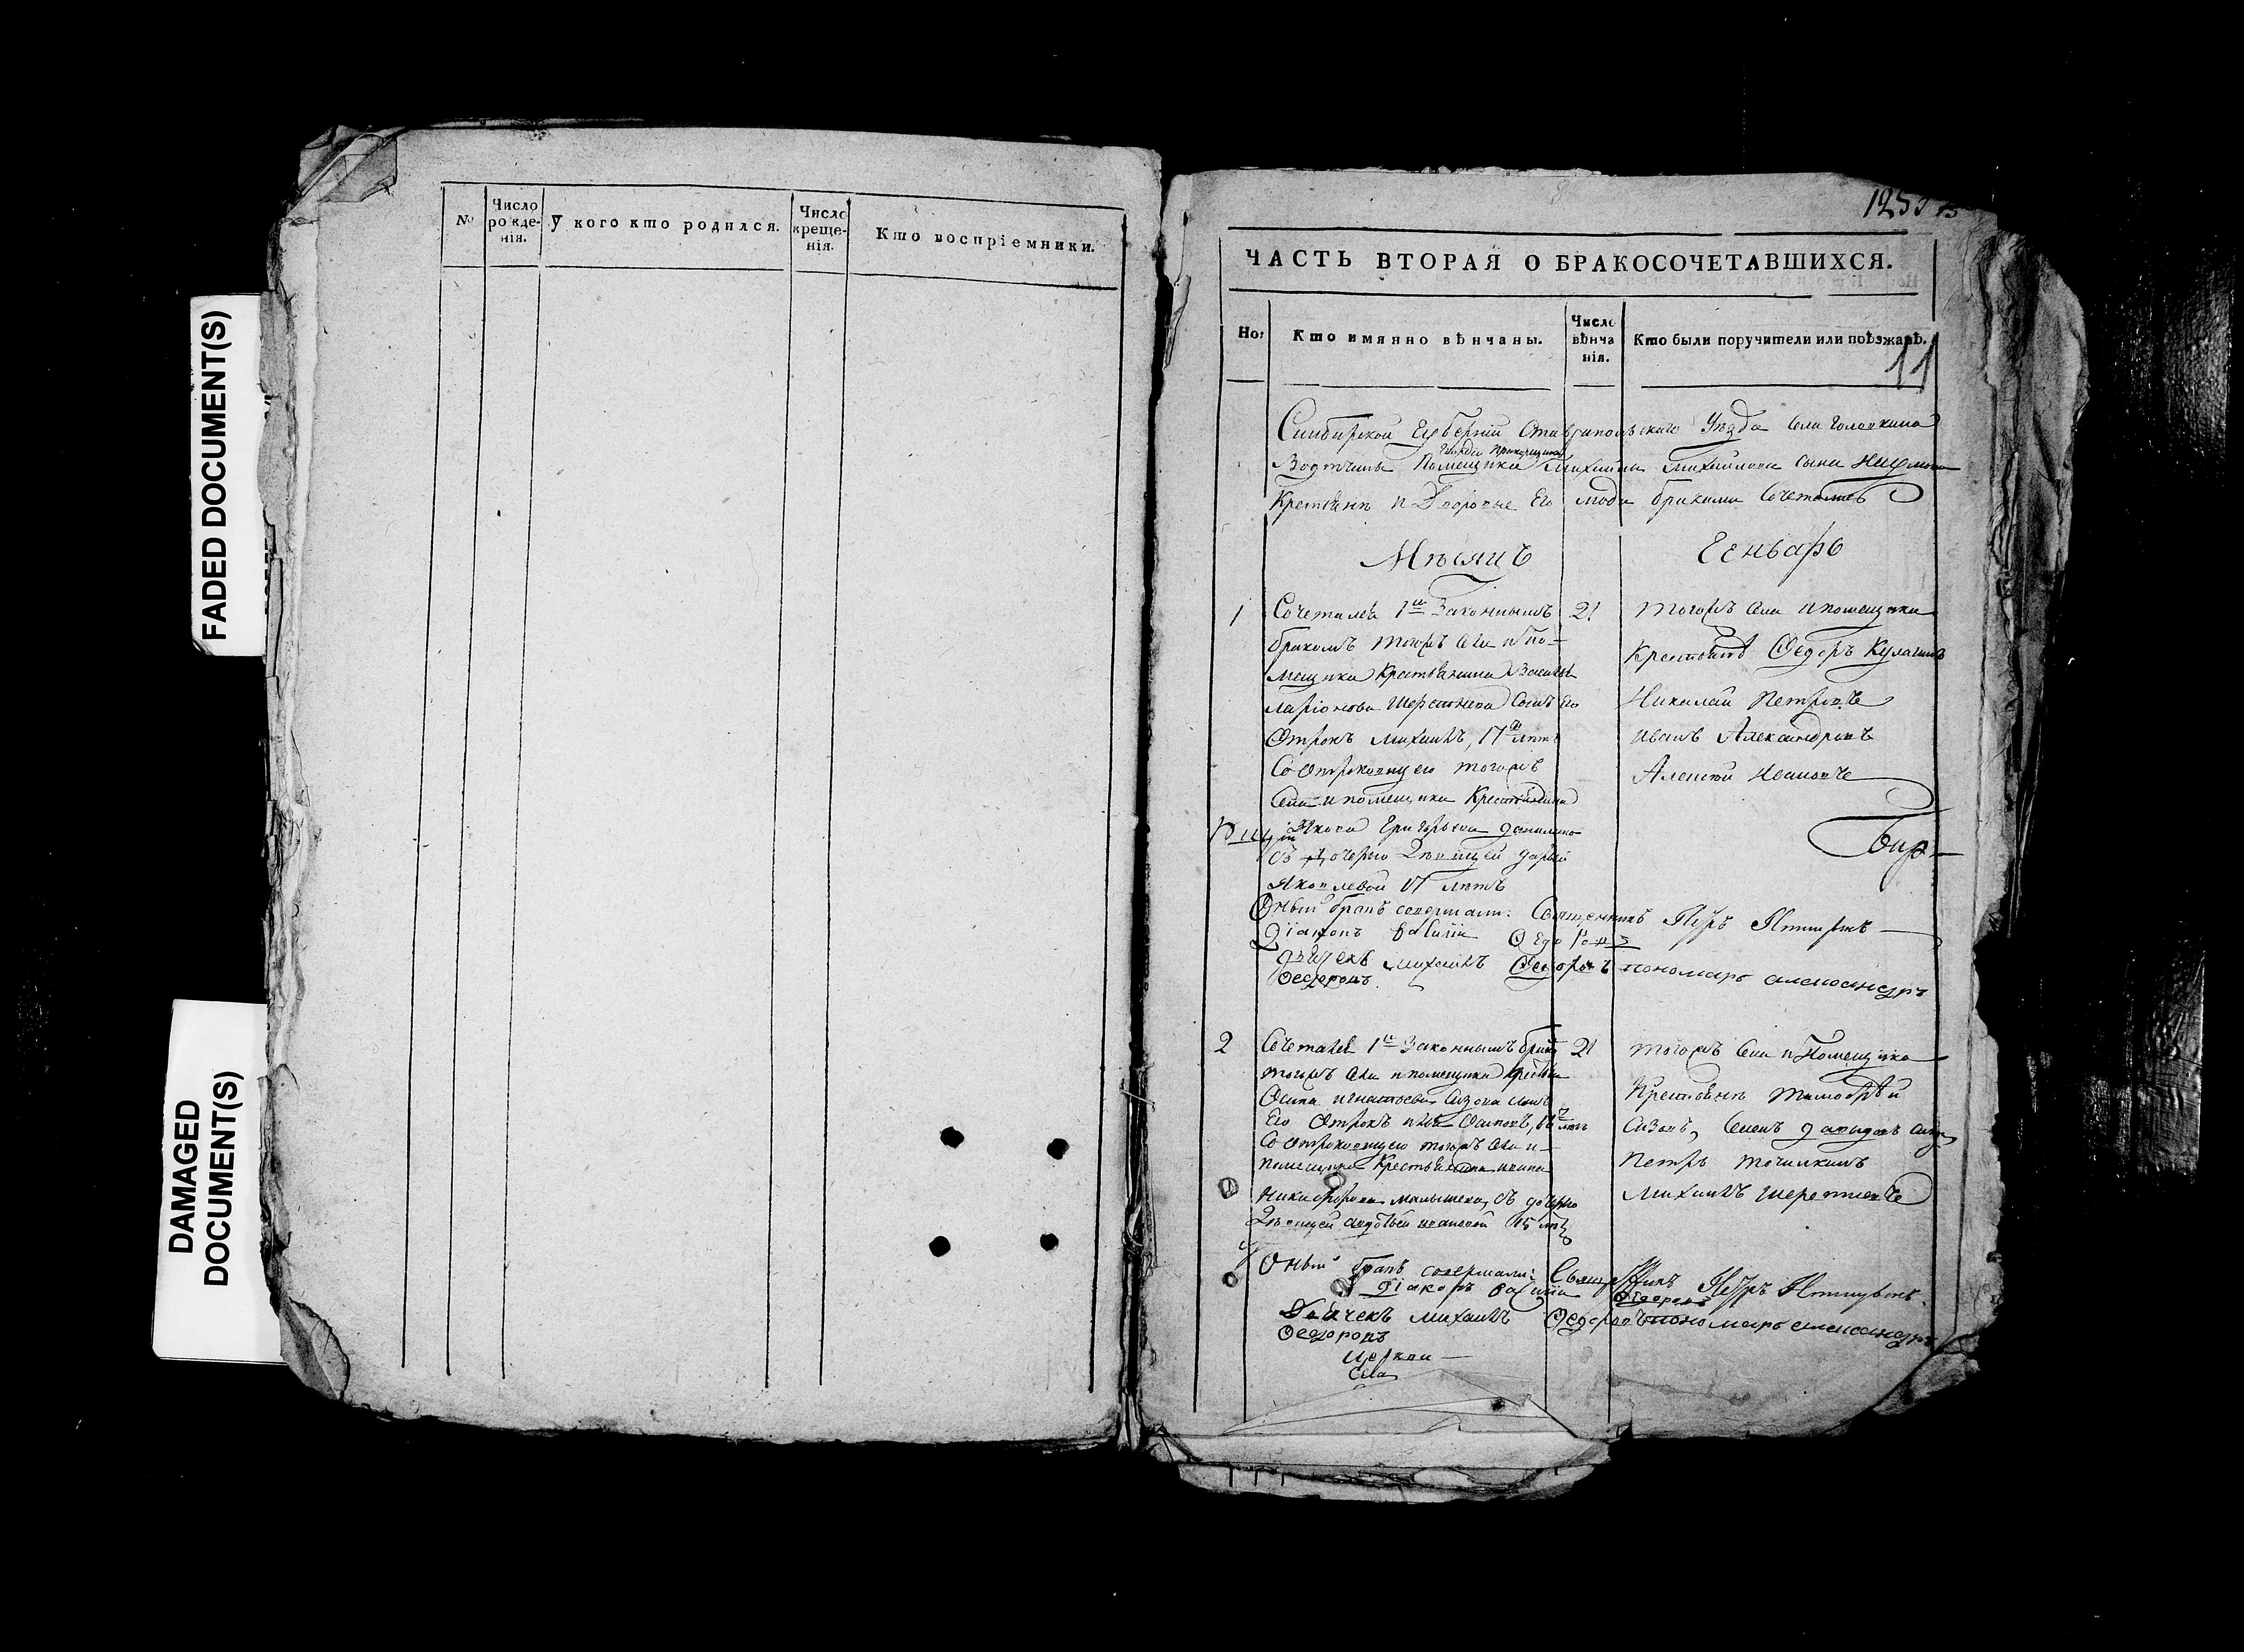 FADED DOCUMENT(S)
DAMAGED
DOCUMENT(S)
№
Число
рожде-
нія.
У кого кто родился.
Число
креще-
нія.
Кто воспріемники.
11
ЧАСТЬ ВТОРАЯ О БРАКОСОЧЕТАВШИХСЯ.
Но:
Кто имянно вѣнчаны.
Число
вѣнча
нія.
Кто были поручители или поѣзжанѣ.
Симбирской Губерніи Ставропольскаго Уѣзда Села Головкина
Вотчины Помещика Михаила Михайлова сына Наумова
Крестьянъ и Дворовые Его люди браками Сочетались
Мѣсяцъ
Генварь
1
Сочетался 1м Законнымъ
бракомъ тогожъ села и по-
мещика Крестьянина Василья
ларіонова Сынъ Его
Отрокъ михаилъ, 17 лѣтъ
Со отроковицею тогожъ
села и помещика Крестьянина
Якова Григорьева
съ дочерью Девицей дарьей
Яковлевой 17 лѣтъ
21
тогожъ села и помещика
Крестьянѣ Федоръ Кулагинъ
Николай Петровъ
иванъ Александровъ
Алексей Ивановъ
Оный бракъ совершали: Священникъ Петръ
Діаконъ Василій Федоровъ
дьячекъ михаилъ Федоровъ пономарь александръ
Федоровъ
2
Сочетался 1м Законнымъ бракомъ
тогожъ села и помещика
Осипа игнатьева Сизова сынъ
Его Отрокъ Осиповъ, лѣтъ
Со отроковицею тогожъ села и
помещика Крестьянина ивана
Никифорова малышева, съ дочерью
Девицей авдотьей ивановой лѣтъ
21
тогожъ села и Помещика
Крестьянѣ тимофѣй
Сизовъ, Семенъ давыдовъ
Петръ точилкинъ
михаилъ
Оный бракъ совершали: Священникъ Петръ
Діаконъ Василій Федоровъ
Дьячекъ михаилъ Федоровъ пономарь александръ
Федоровъ
Церкви
Села